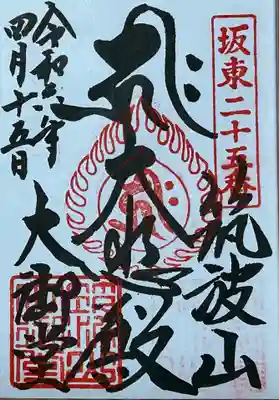 坂東二十五番
筑波山
奉
大悲殿
大御堂
令和六年
四月十五日